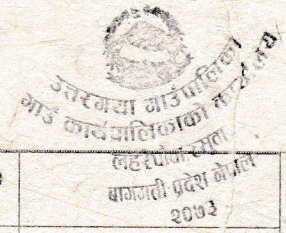 उत्तरगया गाउँपालिका
गाउँ कार्यपालिकाको कार्यालय
लहरेपौवा रसुवा
बागमती प्रदेश नेपाल
२०७३